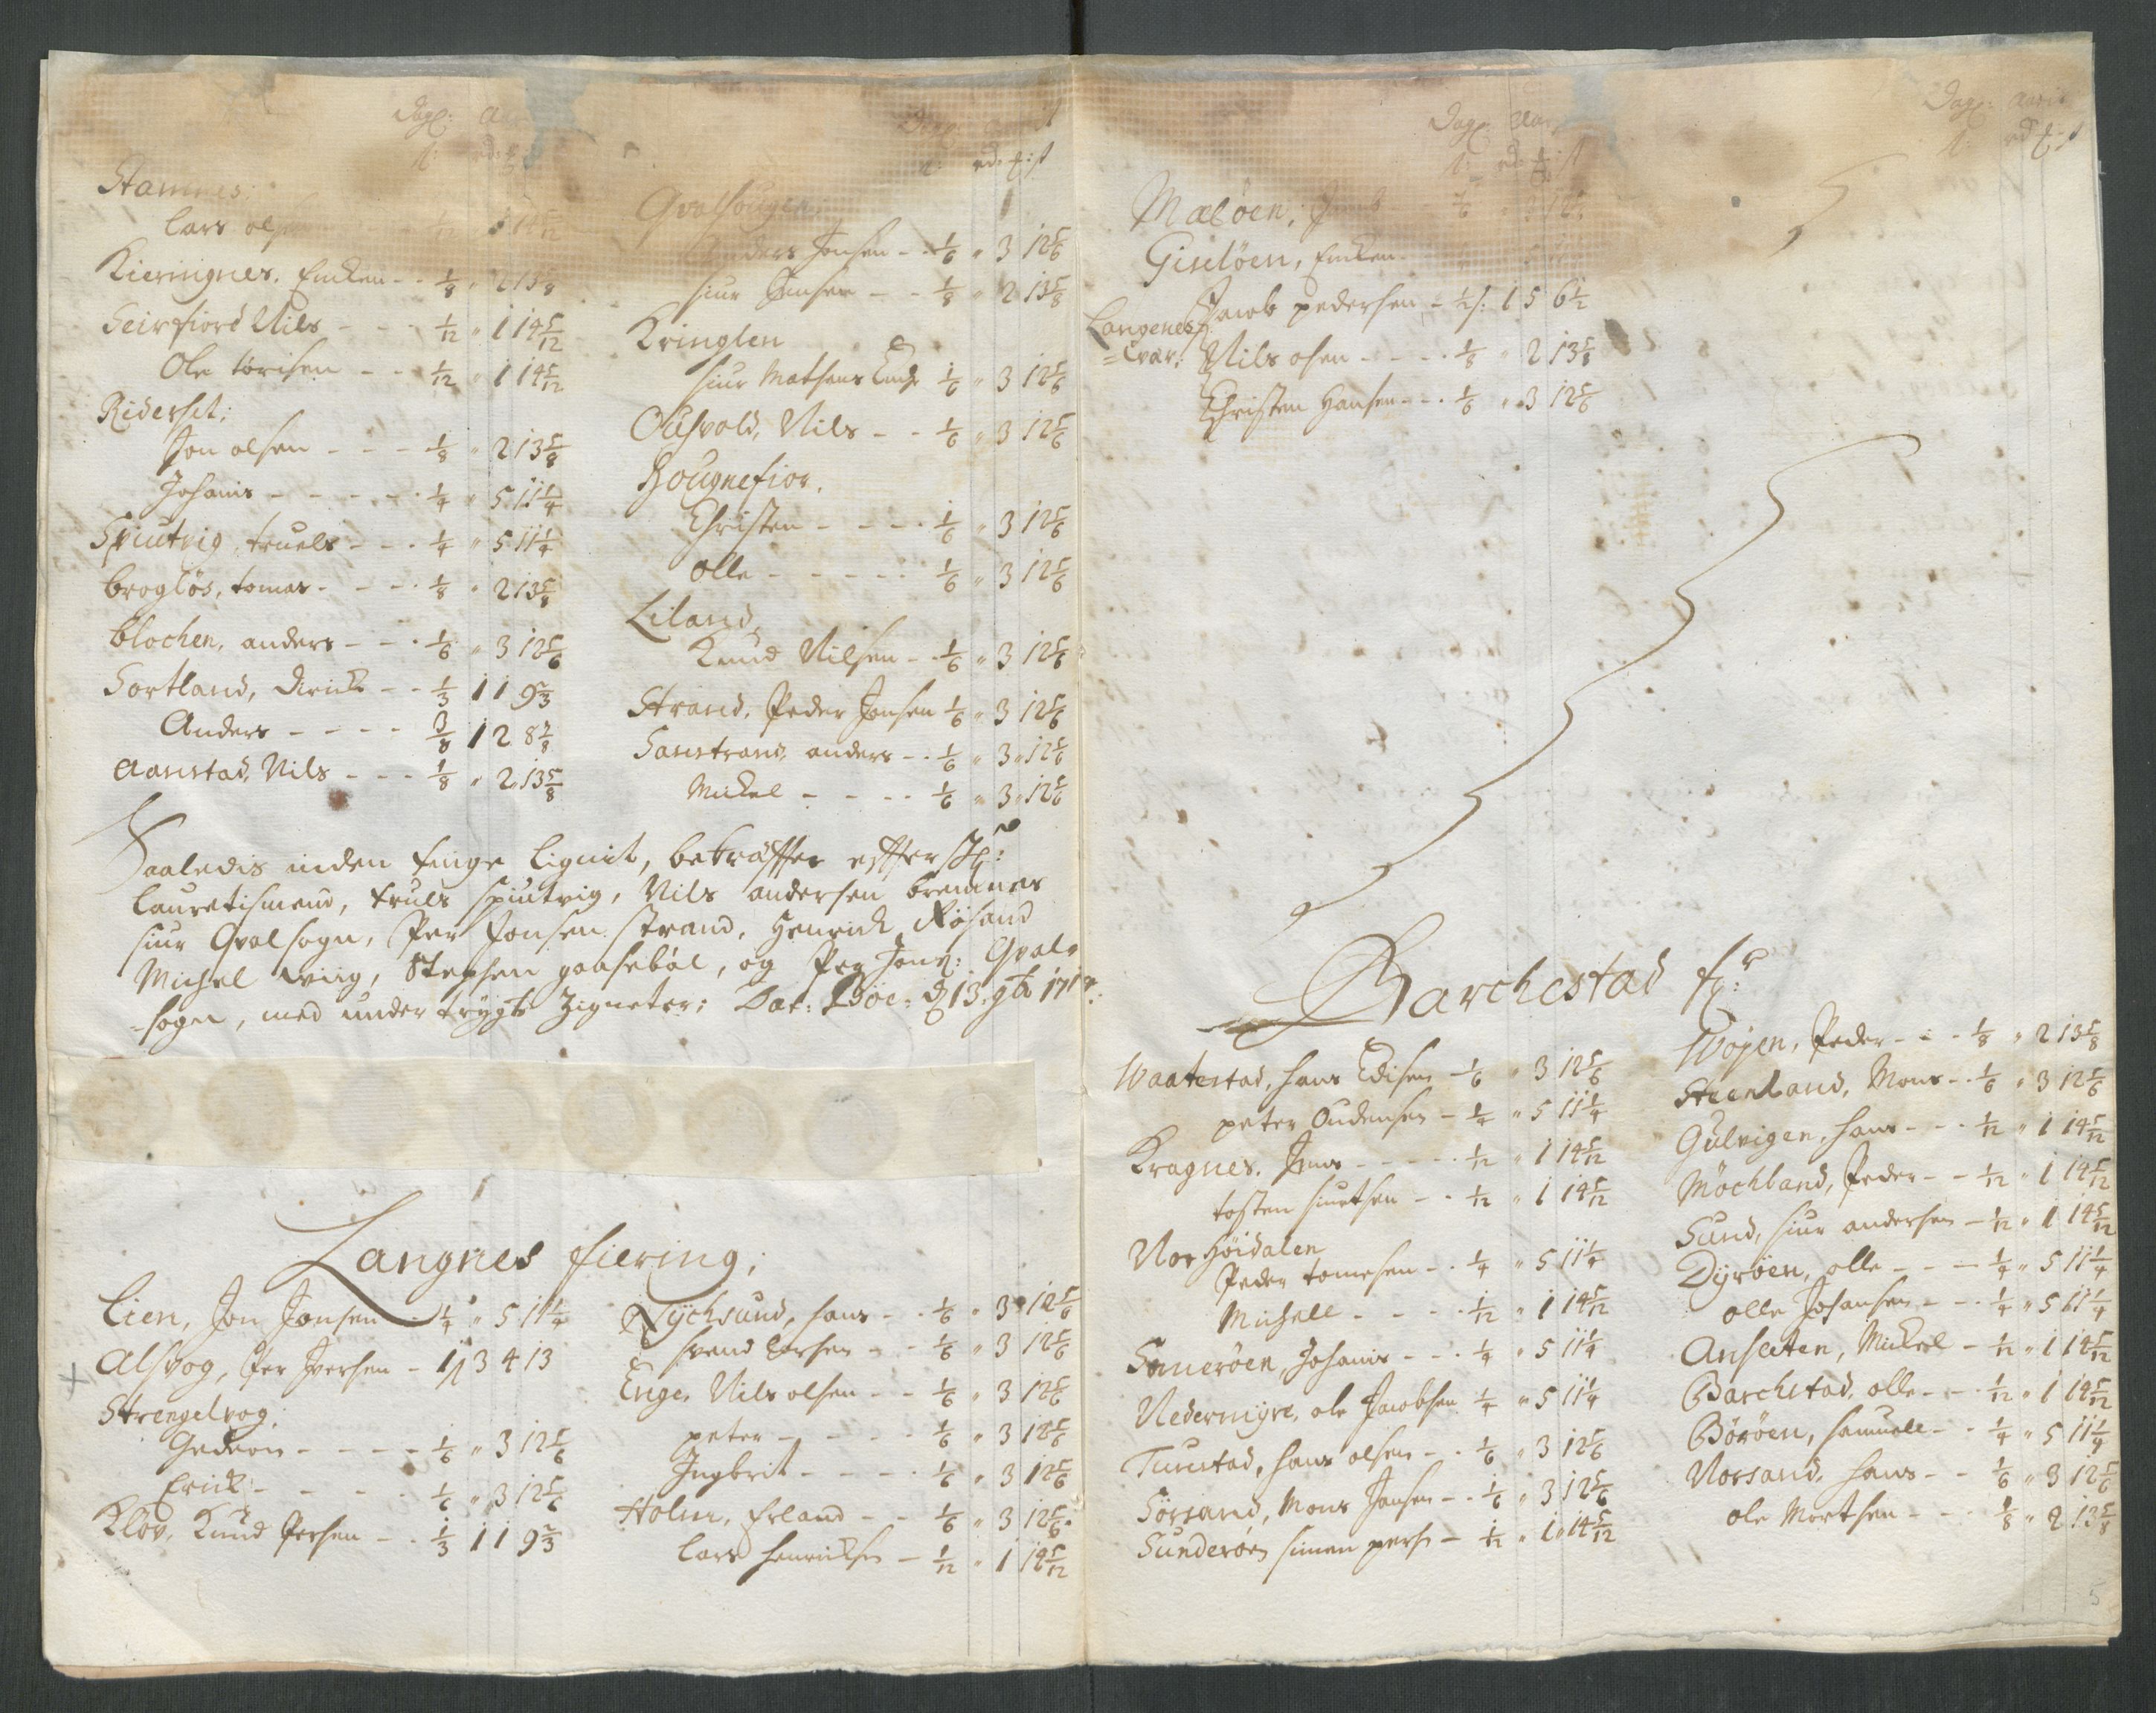 Dagl:
Stamnes:
Lars olsen 1/12 " 1 14 5/12
Kieringnes. Encken - - 1/8 " 2 13 5/8
Seirfiord Nils - - - 1/12 " 1 14 5/12
Ole törisen - - 1/12 " 1 14 5/12
Riderset:
Jon olsen - - - 1/8 " 2 13 5/8
Johanis - - - - 1/4 " 5 11 1/4
Spiutvig, truels - - - 1/4 " 5 11 1/4
broglös, tomas - - - 1/8 " 2 13 5/8
blochen, anders - - - 1/6 " 3 12 5/6
Sortland, Dirick - - 1/3 1 1 9 2/3
Anders - - - - 3/8 1 2 8 7/8
Aanstad, Nils - - - 1/8 " 2 13 5/8
rd: ₰: ß
Qvalsougen
Anders Jonsen - - 1/6 " 3 12 5/6
siur Jensen - - 1/8 " 2 13 5/8
Kringlen
siur Matsens Encke 1/6 " 3 12 5/6
Ousvold, Nils - - 1/6 " 3 12 5/6
Hougnefior.
Christen - - - - 1/6 " 3 12 5/6
olle - - - - - 1/6 " 3 12 5/6
Liland,
Knud Nilsen - - 1/6 " 3 12 5/6
Strand, Peder Jonsen 1/6 " 3 12 5/6
Sanstrand, anders - - 1/6 " 3 12 5/6
Mickel - - - - 1/6 " 3 12 5/6
Saaledis inden tinge lignit, bekräffter effterskr:
lauretismend, truls spiutvig, Nils andersen bremnes
siur Qvalsogn, Per Jonsen strand, Henrich Röjsand
Michel wiig, Stephen gaasebøl, og Per Jons: Qval=
=sogn, med under trÿgte Zigneter; Dat: Böe: d 13 9br 171
Langnes fiering;
Lien, Jon Jonsen - 1/4 " 5 11 1/4
Alsvog, Per Jversen - 1 ß 3 4 13
Strengelvog;
Gedeon - - - - 1/6 " 3 12 5/6
Erick - - - - 1/6 " 3 12 5/6
Klov, Knud Persen - - 1/3 1 1 9 2/3
Nÿchsund, hans - - 1/6 " 3 12 5/6
svend larsen - - 1/6 " 3 12 5/6
Enge, Nils olsen - - 1/6 " 3 12 5/6
peter - - - - 1/6 " 3 12 5/6
Ingbrit - - - - 1/6 " 3 12 5/6
Holm, Erland - - 1/6 " 3 12 5/6
Lars henricksen - 1/12 " 1 14 5/12
Dagl:
rd: ₰: ß
Maløen,
Gisløen, Encken
Jacob pedersen - 1/2 ß: 1 5 6 1/2
Langenes
=Qvar: Nils olsen - - - - 1/8 " 2 13 5/8
Christen Hansen - - - 1/6 " 3 12 5/6
Dagl:
rd ₰: ß
Barchestad fr:
Waatestad, hans Edisen - 1/6 " 3 12 5/6
peter Oudensen - 1/4 " 5 11 1/4
Kragnes. Jens - - - - 1/12 " 1 14 5/12
tosten siurtsen - - 1/12 " 1 14 5/12
Nor Höidalen
Peder tomesen - - 1/4 " 5 11 1/4
Michell - - - - 1/12 " 1 14 5/12
Smerøen, Johanis - - - 1/4 " 5 11 1/4
Nedermÿre, ole Jacobsen 1/4 " 5 11 1/4
Tunstad, hans olsen - - 1/6 " 3 12 5/6
Sörsand, Mons Jonsen - - 1/6 " 3 12 5/6
Sunderøen simen persen - 1/12 " 1 14 5/12
Wojen, Peder - - - 1/8 " 2 13 5/8
Steenland, Mons - - 1/6 " 3 12 5/6
Gulvigen, hans - - - 1/12 " 1 14 5/12
Möchland, Peder - - 1/12 " 1 14 5/12
Sund, siur andersen - 1/12 " 1 14 5/12
Dÿrøen, olle - - - 1/4 " 5 11 1/4
olle Johansen - - - 1/4 " 5 11 1/4
Anseten, Mickel - 1/12 " 1 14 5/12
Barchstad, olle - - - 1/12 " 1 14 5/12
Börøen, samuell - - 1/4 " 5 11 1/4
Norsand, hans - - 1/6 " 3 12 5/6
ole Mortsen - - - 1/8 " 2 13 5/8
5